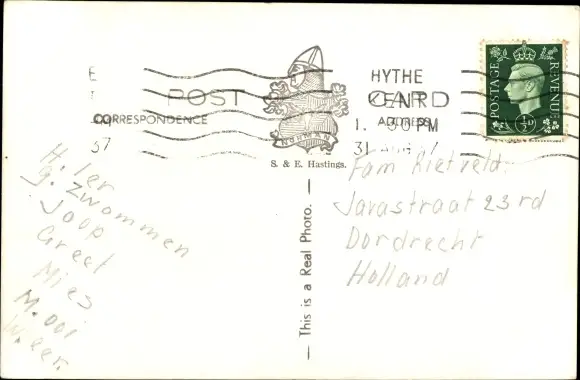 POST CARD
CORRESPONDENCE
ADDRESS
HYTHE
KENT
1. 30 PM
31 AUG
37
NORMAN
S. & E. Hastings.
This is a Real Photo.
POSTAGE
REVENUE
½D
H. Ier
g. zwommen
Joop
Greet
Mies
M. ooi
W. eer.
Fam Rietveld.
Javastraat 23 rd
Dordrecht
Holland